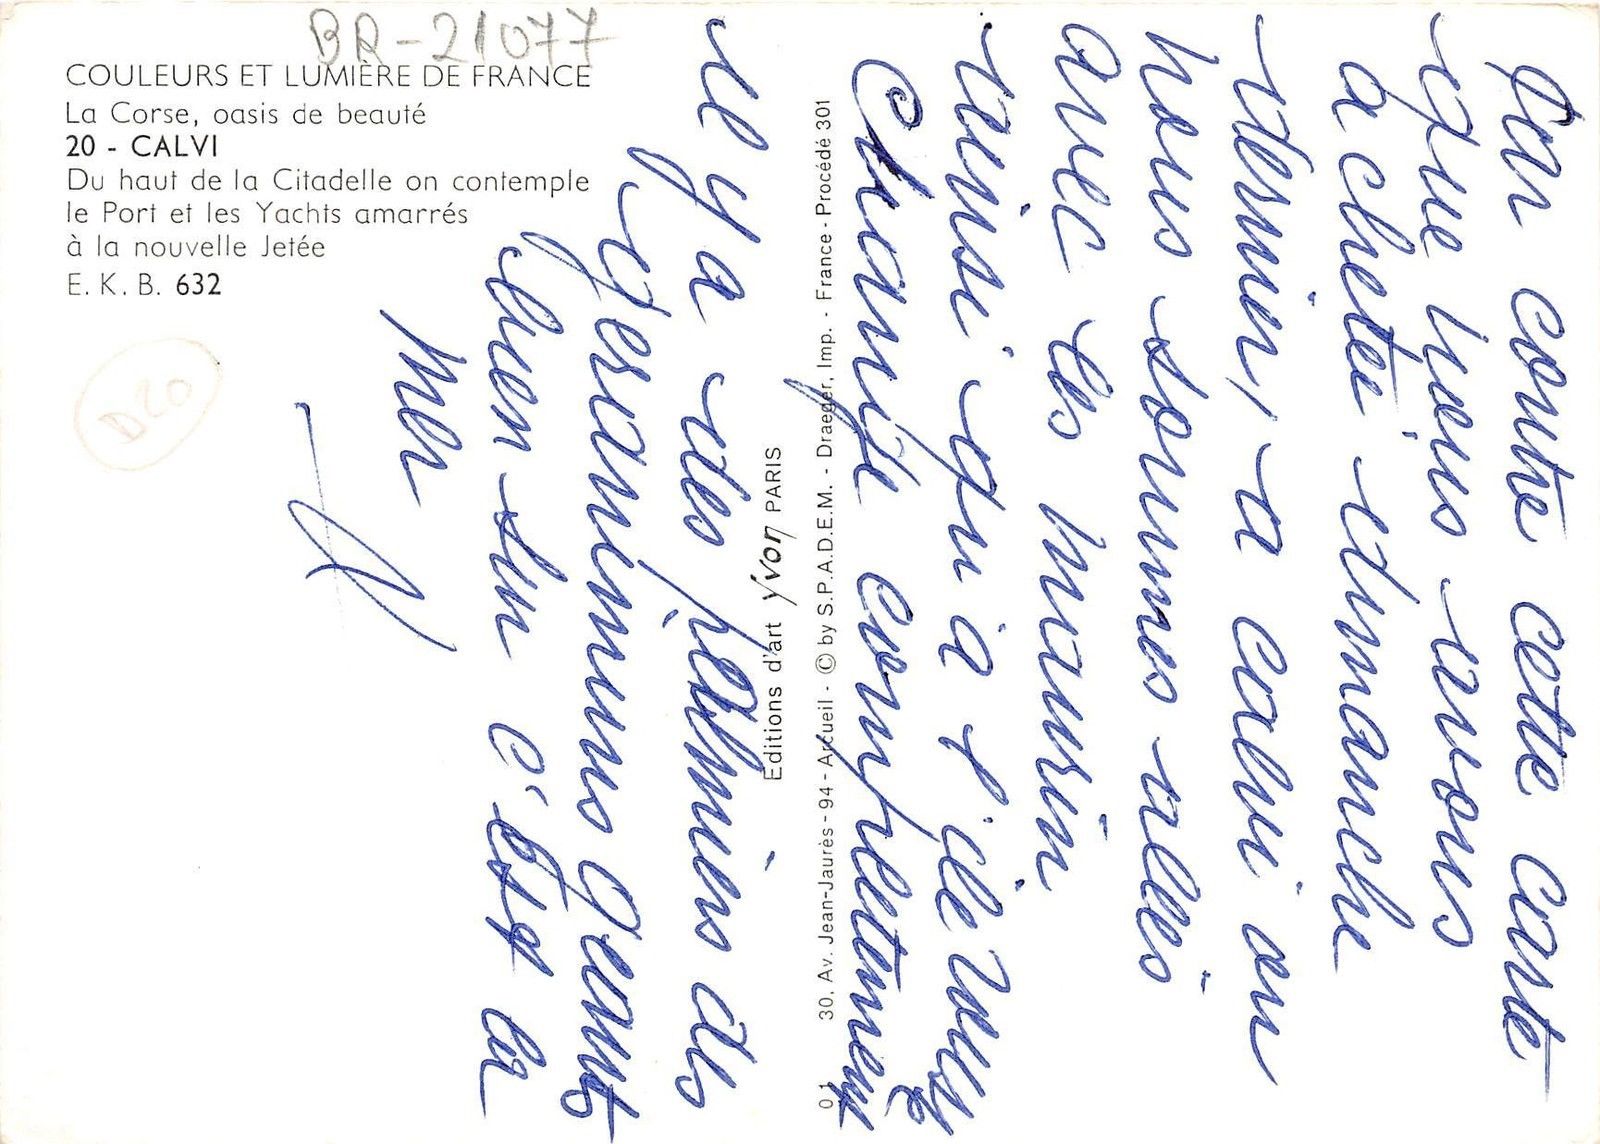 BR-21077
COULEURS ET LUMIÈRE DE FRANCE
La Corse, oasis de beauté
20 - CALVI
Du haut de la Citadelle on contemple
le Port et les Yachts amarrés
à la nouvelle Jetée
E. K. B. 632
D20
Editions d'art yvon PARIS
30, Av. Jean-Jaurès - 94 - Arcueil - © by S.P.A.D.E.M. - Draeger, Imp. - France - Procédé 301
0 1
conte cette carte
que nous avons
acheté dimanche
dernier, a calvi ou
nous sommes allés
avec les maurin
ainsi qu a l'ile
Change complettement
il y a des palmiers des
geraniumus géants
bien sur c'est la
Mer